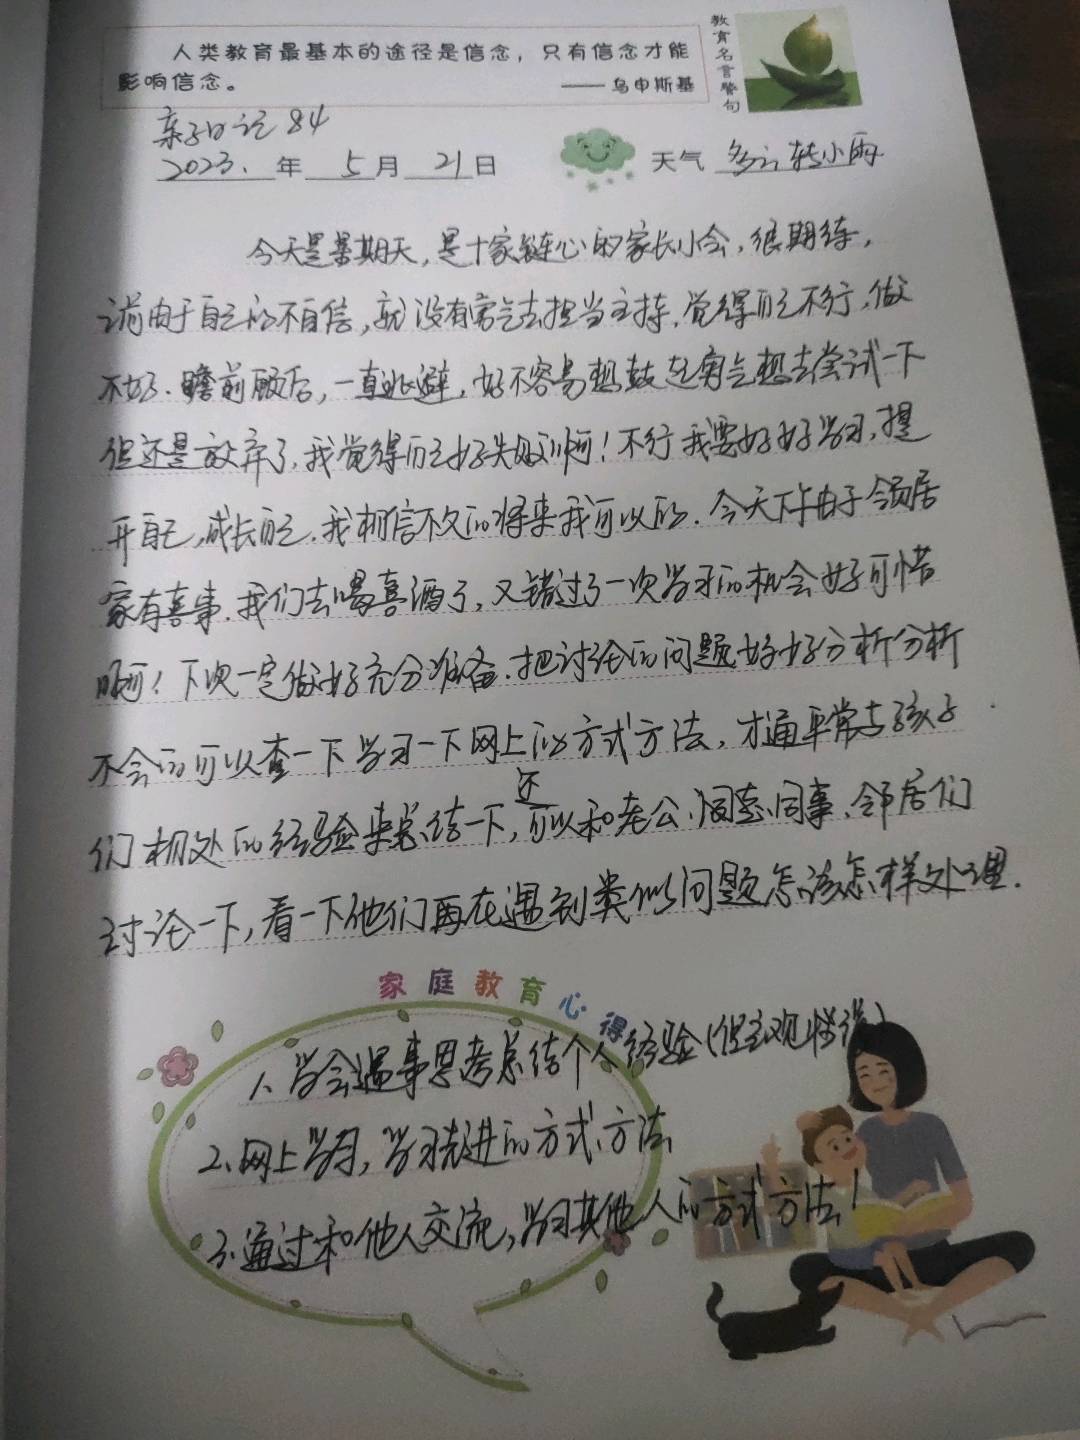 人类教育最基本的途径是信念，只有信念才能
影响信念。
——乌申斯基
教育名言警句
亲子日记84
2023.年5月21日
天气 多云转小雨
今天是星期天，是十家链心的家长小会，很期待，
之前由于自己的不自信，就没有常气去担当主持，觉得自己不行，做
不好．瞻前顾后，一直逃避，好不容易想鼓起勇气想去尝试一下
但还是放弃了，我觉得自己好失败啊！不行我要好好学习，提
升自己，成长自己．我相信不久的将来我可以的．今天下午由于邻居
家有喜事．我们去喝喜酒了，又错过了一次学习的机会好可惜
啊！下次一定做好充分准备．把讨论的问题好好分析分析
不会的可以查一下学习一下网上的方式方法，才通平常与孩子
们相处的经验来总结一下，还可以和老公、闺蜜、同事、邻居们
讨论一下，看一下他们再在遇到类似问题怎该怎样处理．
家庭教育心得
1、学会遇事思考总结个人经验（但主观性强）
2、网上学习，学习先进的方式、方法
3、通过和他人交流，学习其他人的方式方法！